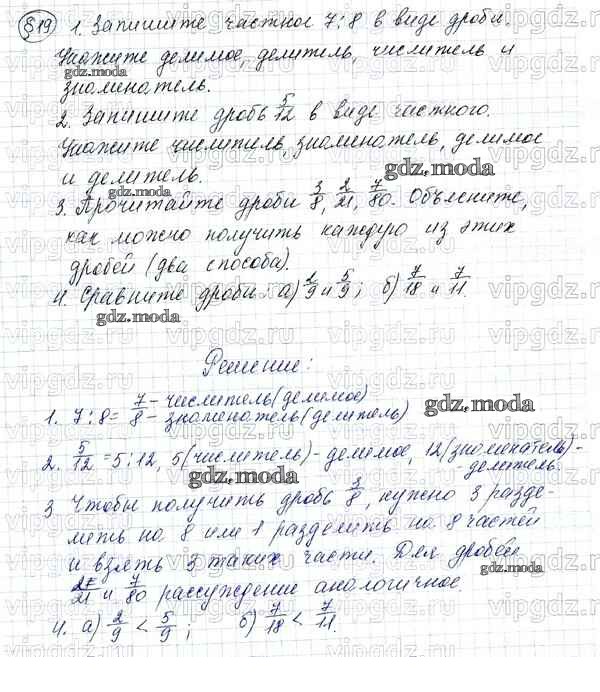 §19) 1. Запишите частное 7:8 в виде дроби.
Укажите делимое, делитель, числитель и
знаменатель.
2. Запишите дробь 5/12 в виде частного.
Укажите числитель, знаменатель, делимое
и делитель.
3. Прочитайте дроби 3/8, 2/21, 7/80. Объясните,
как можно получить каждую из этих
дробей (два способа).
4. Сравните дроби: а) 2/9 и 5/9; б) 7/18 и 7/11.
Решение:
1. 7:8 = 7/8 7 - числитель (делимое)
8 - знаменатель (делитель)
2. 5/12 = 5:12, 5 (числитель) - делимое, 12 (знаменатель) -
- делитель.
3 Чтобы получить дробь 3/8, нужно 3 разде-
лить на 8 или 1 разделить на 8 частей
и взять 3 таких части. Для дробей
2/21 и 7/80 рассуждение аналогичное.
4. а) 2/9 < 5/9; б) 7/18 < 7/11.
gdz.moda
gdz.moda
gdz.moda
gdz.moda
gdz.moda
gdz.moda
vipgdz.com